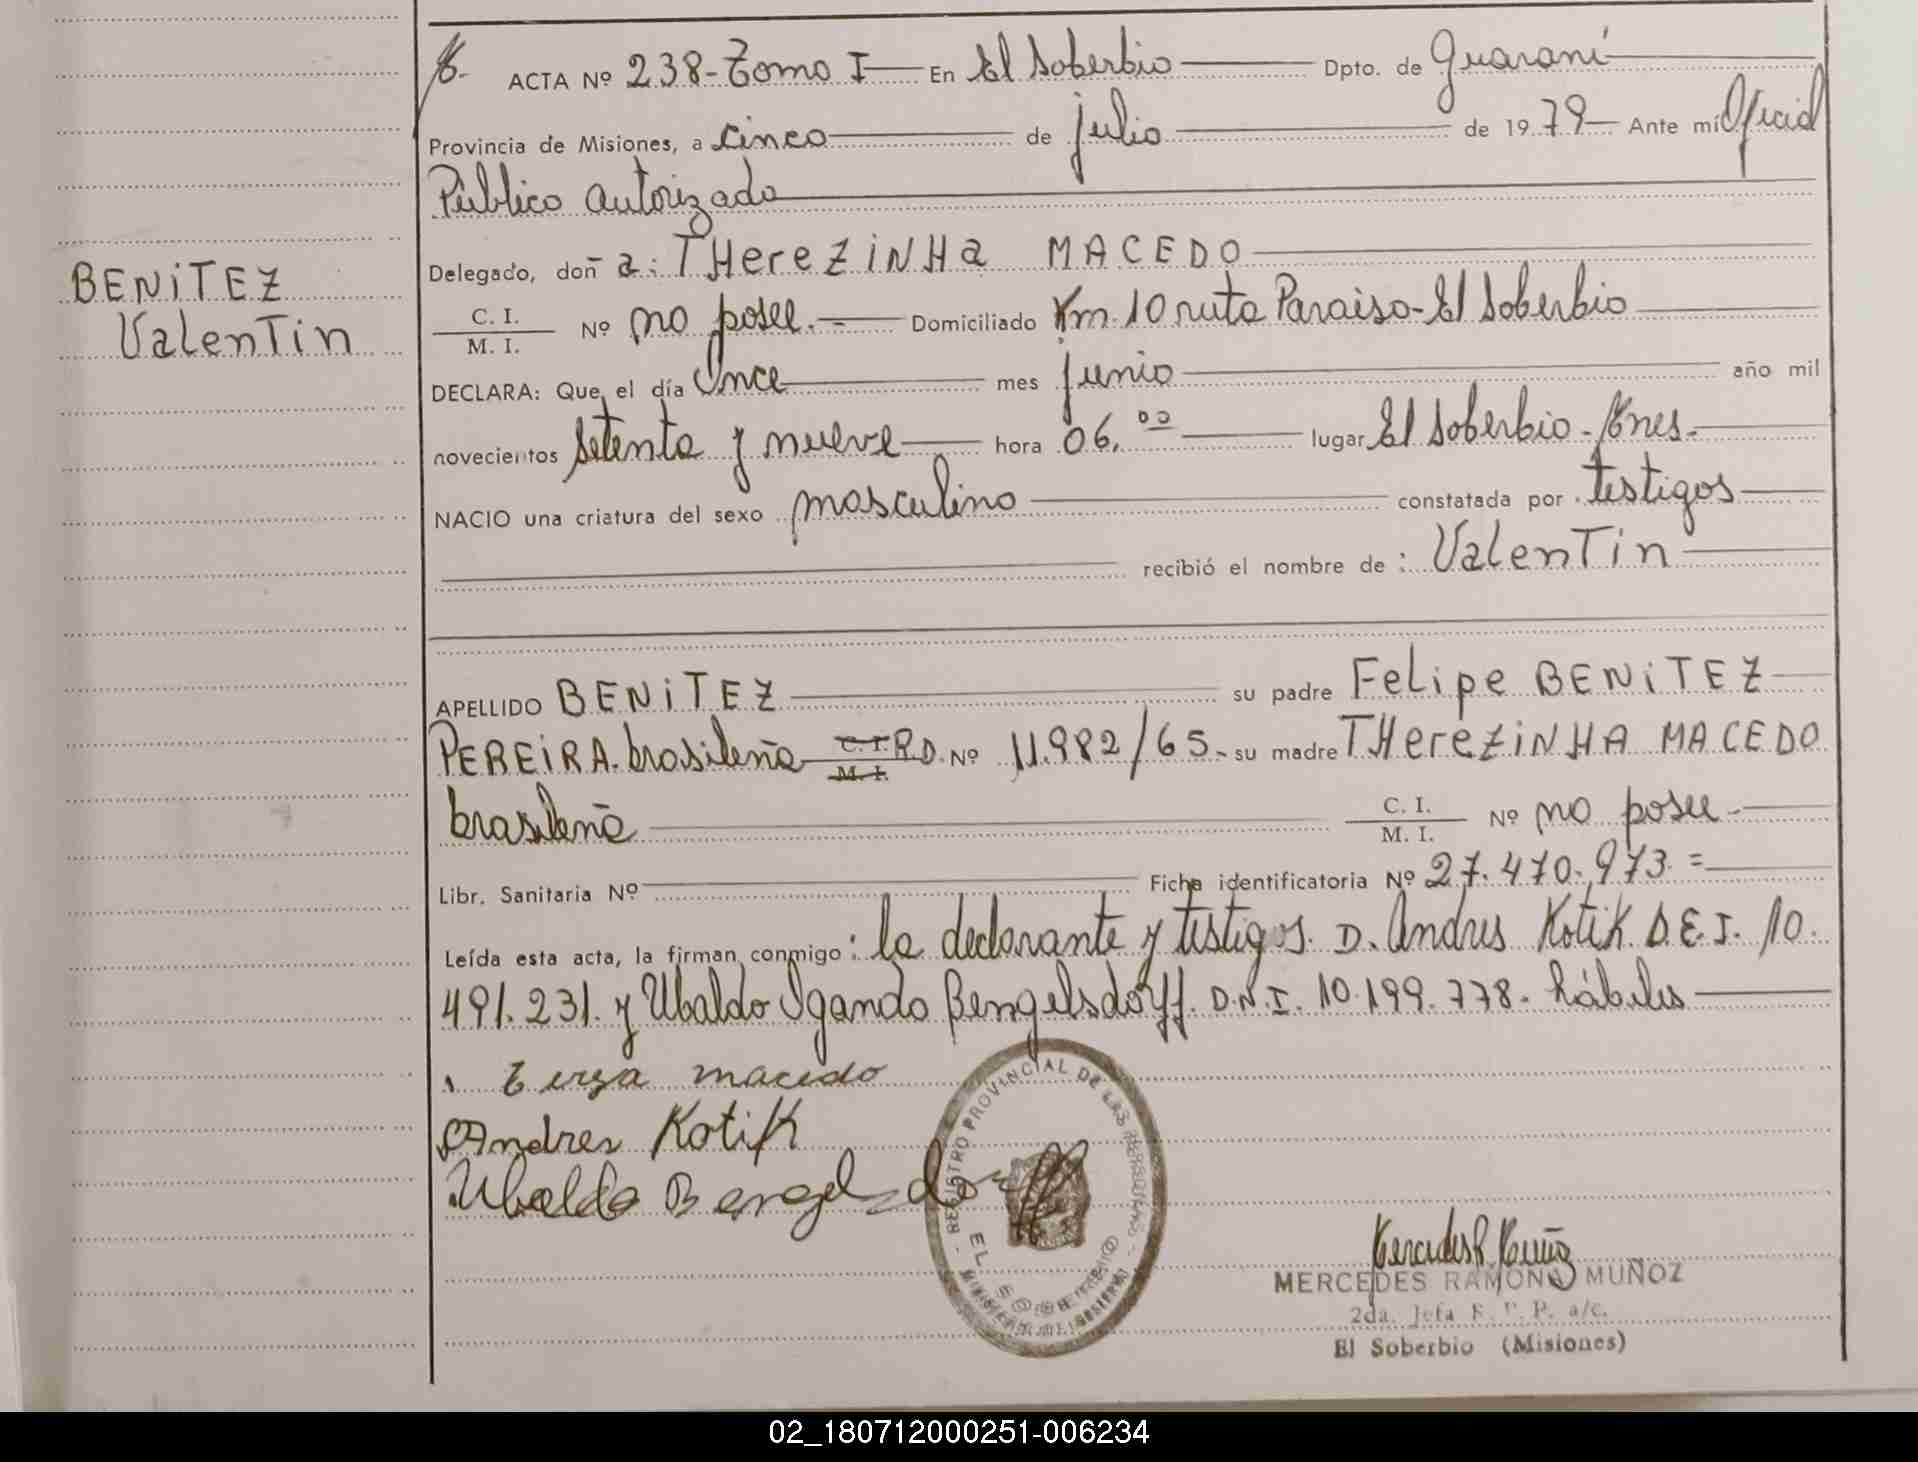 ACTA Nº 238-Tomo I En El Soberbio Dpto. de Guaraní
Provincia de Misiones, a cinco de julio de 1979 Ante mí Oficial
Público autorizado
Delegado, doña: THerezinHa MACEDO
C. I. / M. I. Nº no posee.- Domiciliado Km. 10 ruta Paraiso-El Soberbio
BENiTEZ
ValenTin
DECLARA: Que, el día Once mes junio año mil
novecientos setenta y nueve hora 06.00 lugar El Soberbio-Mnes.-
NACIO una criatura del sexo masculino constatada por testigos
recibió el nombre de: ValenTin
APELLIDO BENiTEZ su padre Felipe BENiTEZ
PEREiRA. brasileña C. I. R.D. M. I. Nº 11.982/65.- su madre THerezinHA MACEDO
brasileña C. I. / M. I. Nº no posee-
Libr. Sanitaria Nº Ficha identificatoria Nº 27.470.973.=
Leída esta acta, la firman conmigo: la declarante y testigos. D. Andres Kotik D.E.I. 10.
491.231. y Ubaldo Bengelsdorff. D.N.I. 10.199.778. hábiles
macedo
Andres Kotik
Ubaldo Bengelsdorff
REGISTRO PROVINCIAL DE LAS PERSONAS
EL SOBERBIO
MERCEDES RAMONA MUÑOZ
2da. Jefa R. P. P. a/c.
El Soberbio (Misiones)
02_180712000251-006234